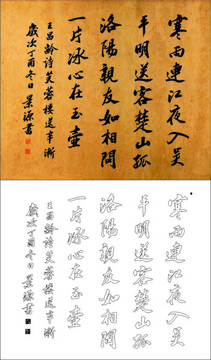 寒雨連江夜入吴
平明送客楚山孤
洛陽親友如相問
一片冰心在玉壺
王昌齡詩芙蓉樓送辛漸
歲次丁酉冬日景源書
寒雨連江夜入吴
平明送客楚山孤
洛陽親友如相問
一片冰心在玉壺
王昌齡詩芙蓉樓送辛漸
歲次丁酉冬日景源書